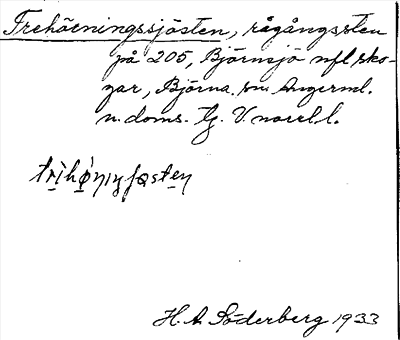 Trehörningssjösten, rågångssten
på 205, Björnsjö nfl sko-
gar, Björna sn. Ångerml.
n. doms. tg. V. norrl. l.
trihø̀niŋʃøsten
H. A. Söderberg 1933